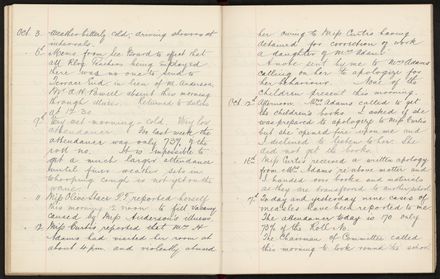 Oct. 3. Weather bitterly cold; driving showers at
intervals.
6. Memo from Ed. Board to effect that
all Relvg Teachers being employed
there was no one to send to
Mr. A. H. Powell absent this morning
through illness. Returned to duties
at 12.30.
9. Very wet morning - cold. Very low
attendance. In last week the
attendance was only 73% of the
roll no. It is impossible to
get a much larger attendance
until finer weather sets in.
Whooping cough is not yet on the
wane.
11. Miss Olive Stace reported herself
this morning to fill vacancy
caused by Miss Anderson's illness.
12. Miss Curtis reported that Mrs H
Adams had visited her room at
about 4 p.m. and violently abused
her owing to Miss Curtis having
detained for correction of work
a daughter of Mrs Adams.
A note sent by me to Mrs Adams
calling on her to apologise for
her behaviour. None of the
children present this morning.
Oct. 12. Afternoon - Mrs Adams called to get
the children's books. I asked if she
was prepared to apologise to Miss Curtis
but she opened fire upon me and
I declined to listen to her. She
did not get the books.
16. Miss Curtis received a written apology
from Mrs Adams
I handed over books and materials
as they are transferred to another school.
17. Today and yesterday nine cases of
measles have been reported to me.
The attendance today is 70 only
73% of the Roll No.
The Chairman of Committee called
this morning to look round the school